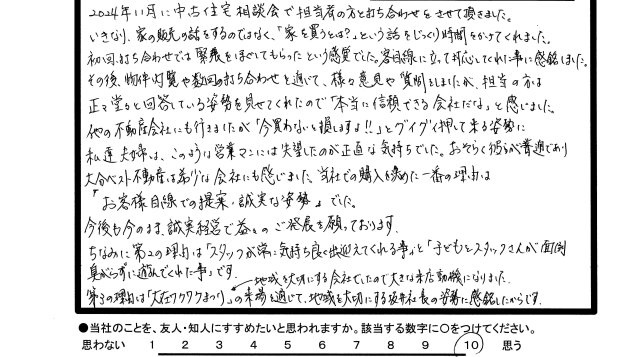 2024年11月に中古住宅相談会で担当者の方と打ち合わせをさせて頂きました。
いきなり、家の販売の話をするのではなく、「家を買うとは?」という話をじっくり時間をかけてくれました。
初回打ち合わせでは緊張をほぐしてもらったという感覚でした。客目線に立って対応してくれた事に感銘しました。
その後、物件内覧や数回の打ち合わせを通じて、様々意見や質問をしましたが、担当の方は
正々堂々と回答している姿勢を見せてくれたので「本当に信頼できる会社だな」と感じました。
他の不動産会社にも行きましたが「今買わないと損しますよ!!」とグイグイ押して来る姿勢に
私達夫婦は、このような営業マンには失望したのが正直な気持ちでした。おそらく彼らが普通であり
大分ベスト不動産は希少な会社にも感じました。当社での購入を決めた一番の理由は
『お客様目線での提案・誠実な姿勢』でした。
今後も今のまま、誠実経営で益々のご発展を願っております。
ちなみに第2の理由は「スタッフが常に気持ち良く出迎えてくれる事」と「子どもとスタッフさんが面倒
臭がらずに遊んでくれた事」です。
地域を大切にする会社でしたので大きな来店動機になりました。
第3の理由は「大在ワクワクまつり」の来場を通じて、地域を大切にする坂井社長の姿勢に感銘したからです。
●当社のことを、友人・知人にすすめたいと思われますか。該当する数字に○をつけてください。
思わない 1 2 3 4 5 6 7 8 9 10 思う